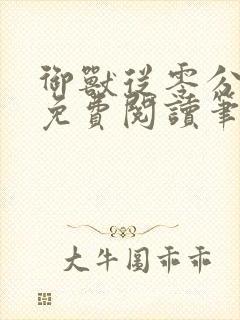 御獸從零分
免費閱讀筆
大牛圈乖乖